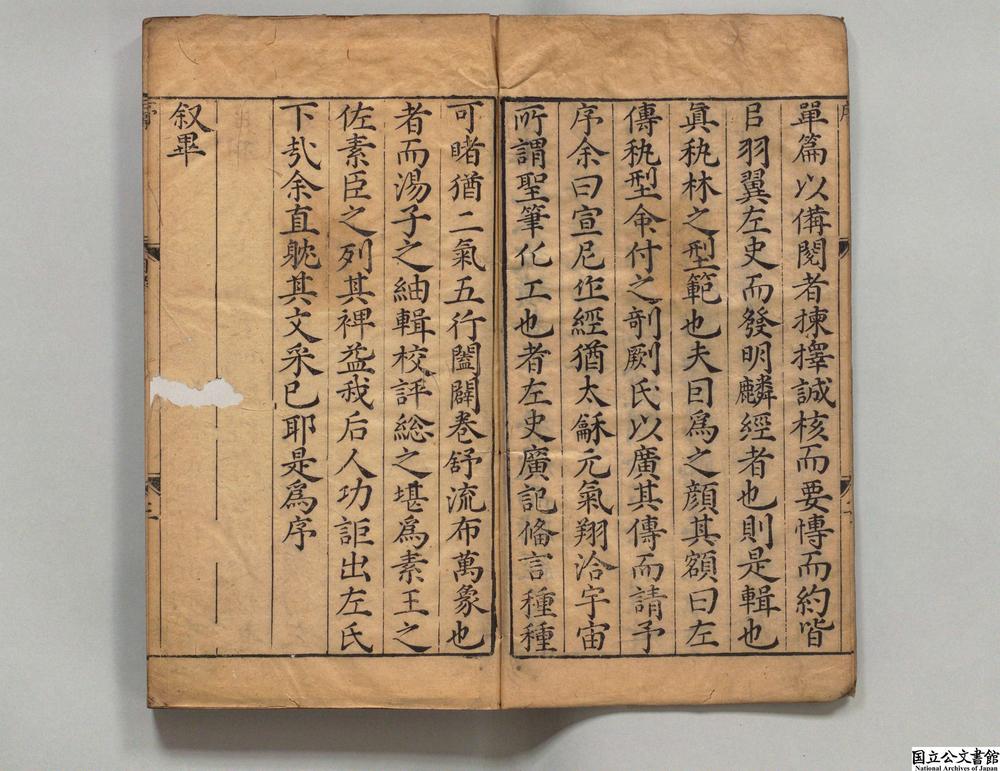 單篇以備閱者揀擇誠核而要慱而約皆
㠯羽翼左史而發明麟經者也則是輯也
眞秇林之型範也夫因爲之顔其額曰左
傳秇型命付之剞劂氏以廣其傳而請予
序余曰宣尼作經猶太龢元氣翔洽宇宙
所謂聖筆化工也者左史廣記俻言種種
可睹猶二氣五行闔闢卷舒流布萬象也
者而湯子之紬輯校評総之堪爲素王之
佐素臣之列其裨益我后人功詎出左氏
下㢤余直躭其文采已耶是爲序
叙畢
序
二
国立公文書館
National Archives of Japan